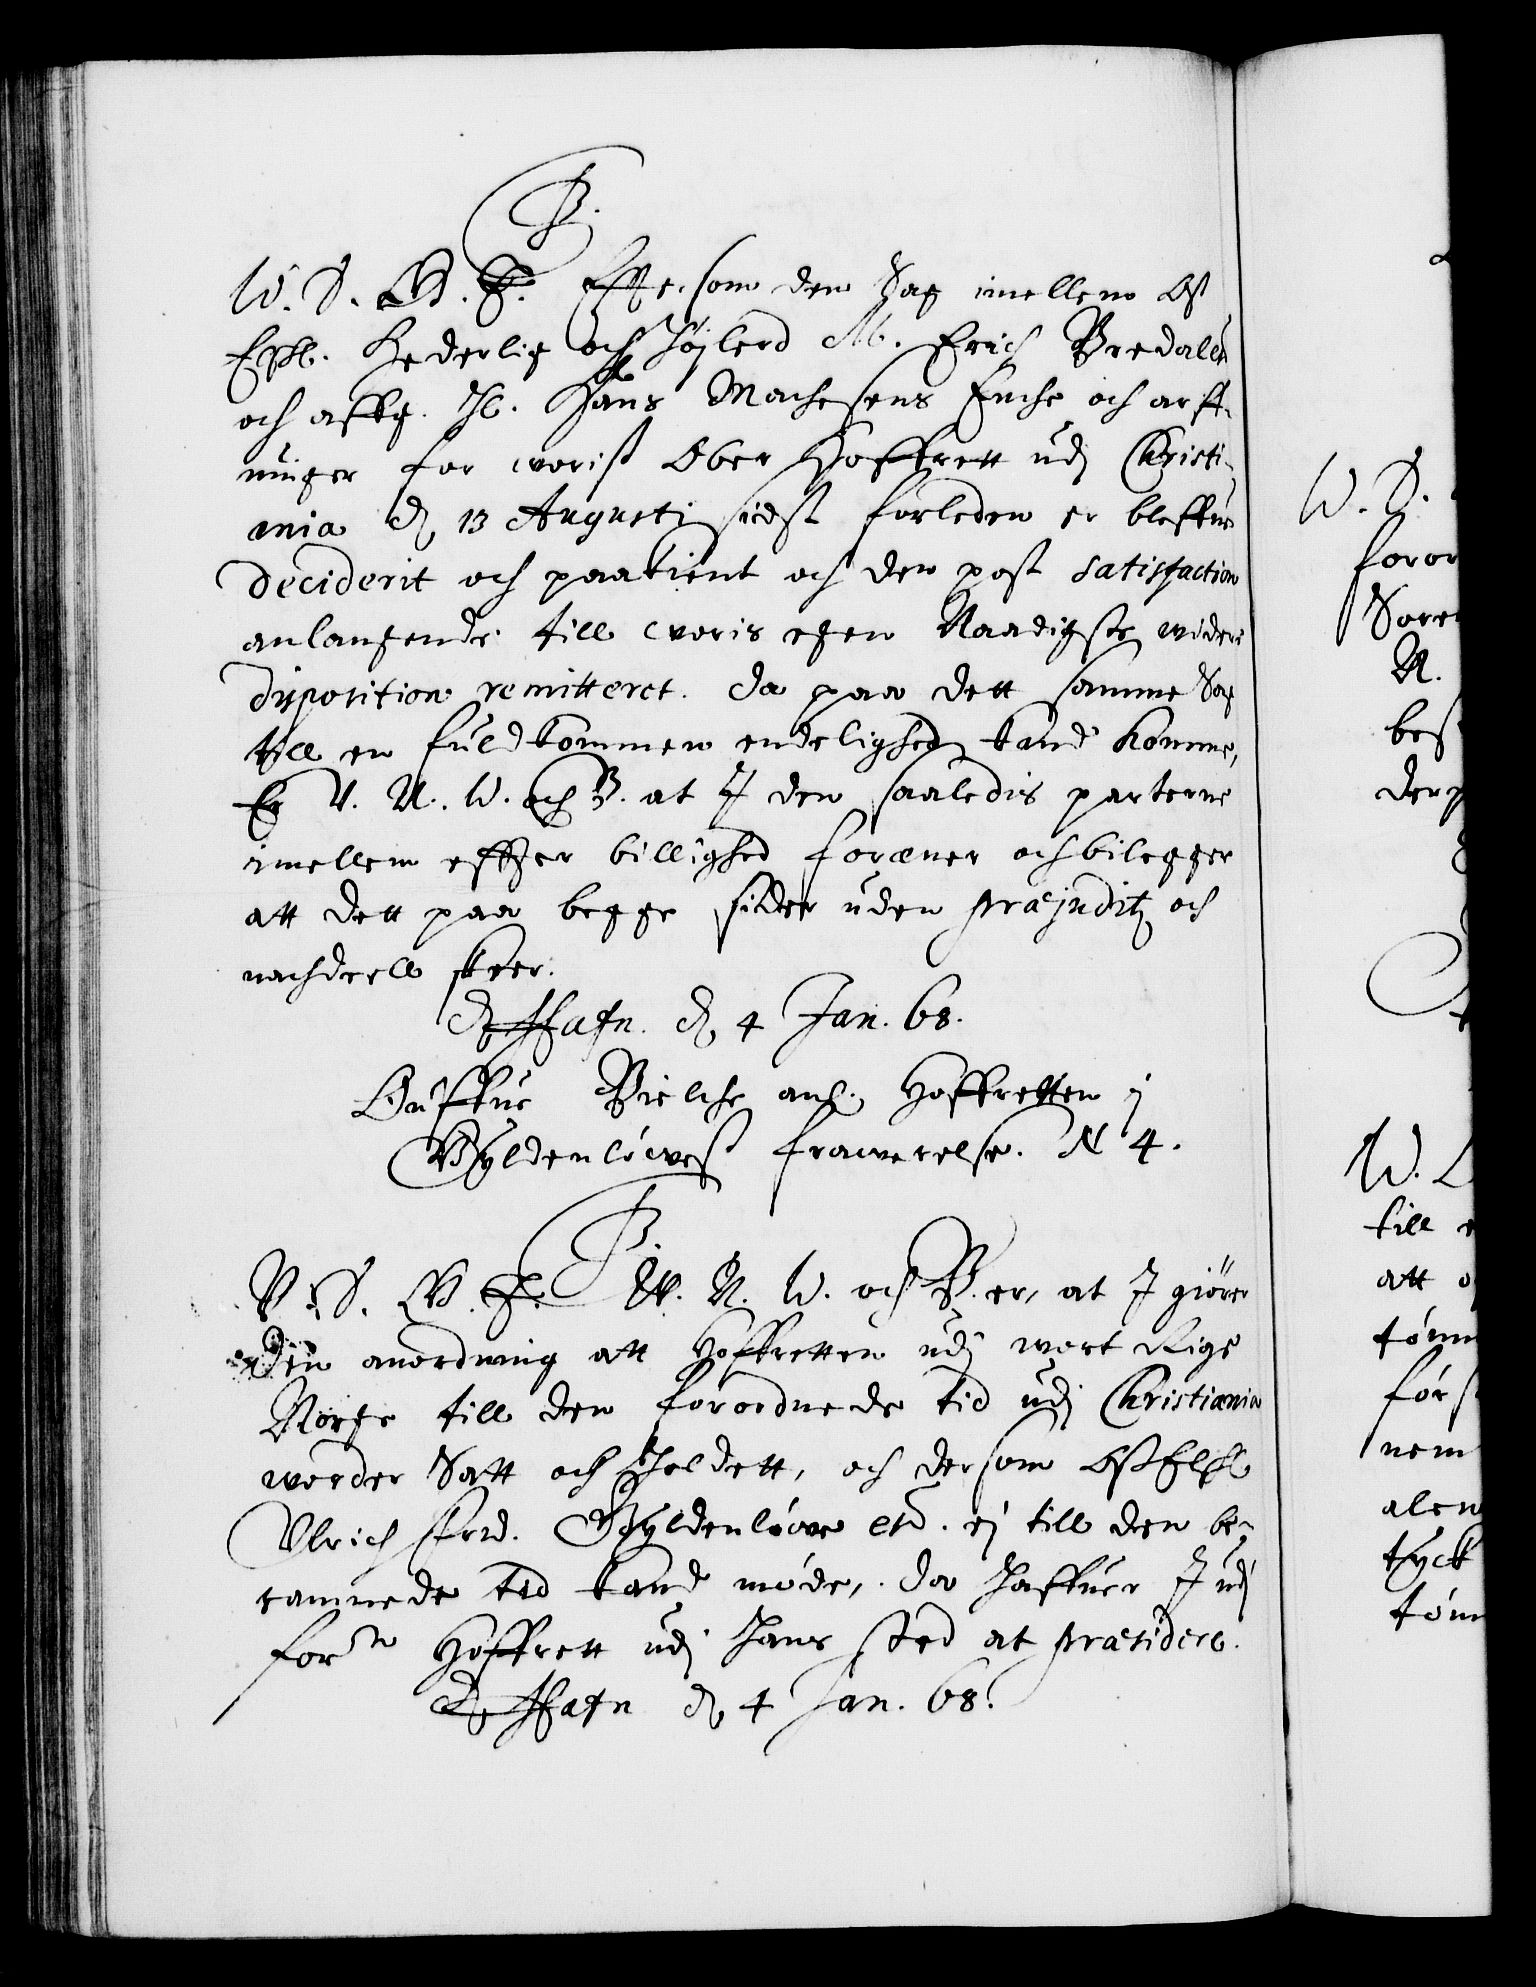 B.
W. S. G. T. Efftersom den Sag imellem Oss
Elskl. Hederlig och Højlerd M. Erich Bredalen
och affg. Sl. Hans Machesens Enche och arff-
ninger for worist Ober Hoffrett udj Christi-
ania d. 13 Augusti sidst forleden er bleffuen
deciderit och paakient och den post satisfaction
anlangende till woris egen Naadigste widere
disposition remitteret. da paa dett samme Sag
till en fuldkommen endelighed kand komme,
Er V. N. W. och B. at J den saaledis parterne
imellem effter billighed foræner och bilegger
att dett paa begge sider uden præjuditz och
nachdeell skeer.
Hafn. d. 4 Jan. 68.
Ouffue Bielche anl. Hoffretten i
Gyldenløwes frawerelse. N 4.
B.
V. S. G. T. W. N. W. och B. er, at J giører
den anordning att Hoffretten udj wort Rige
Norge till den forordnede tid udj Christiania
worder Satt och Holdett, och dersom Oss Elskl
Ulrich Frid. Gyldenløwe etc. ej till den be-
rammede tid kand møde, da haffuer J udj
forne Hoffrett udj hans sted at præsidere.
Hafn d. 4 Jan. 68.
W. S.
foror
Søre
N.
bes
der
W.
till
att
tønn
før
nem
alen
tyck
tøn